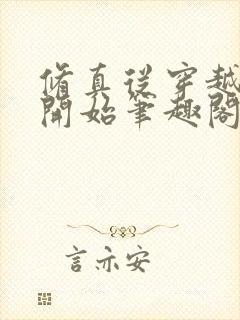 脩真從穿越
開始筆趣閣
言亦安